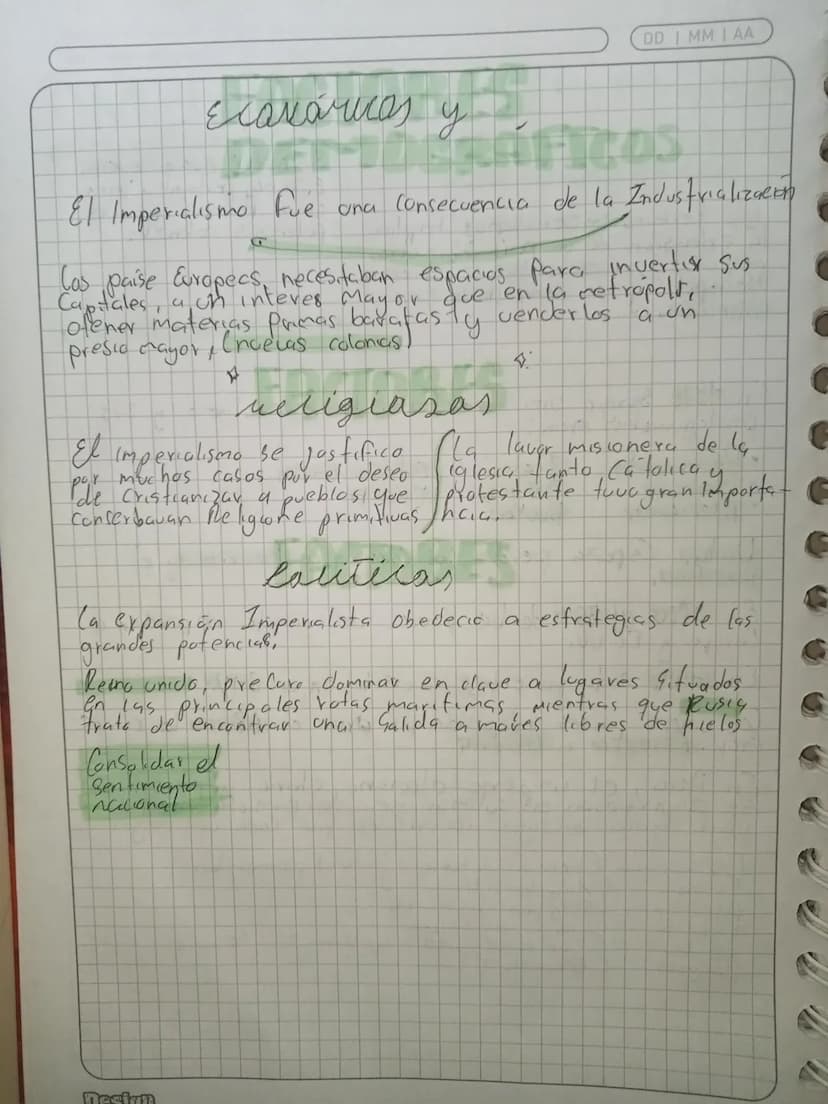 DD | MM | AA
FACTORES
Económicos y
DEMOGRÁFICOS
El Imperialismo Fue una consecuencia de la Industrialización
Los paise Europeos, necesitaban espacios para invertir sus
Capitales, a un interes mayor que en la metropoli,
otener materias Primas baratas y venderlos a un
presio mayor, (nuelas colonias)
FACTORES
religiosos
El imperialismo se justifico
por muchos casos por el deseo
de cristianizar a pueblos que
conserbavan Religione primitivas
La lavor misionera de la
iglesia, tanto Catolica y
protestante tuvo gran Importa-
ncia.
FACTORES
Politicos
La expansión Imperialista obedecio a estrategias de las
grandes potencias.
Reino unido, preCuro dominar en clave a lugares Situados
en las principales rutas maritimas mientras que Rusia
trato de encontrar una Salida a mares libres de hielos
Consolidar el
sentimiento
nacional
Design